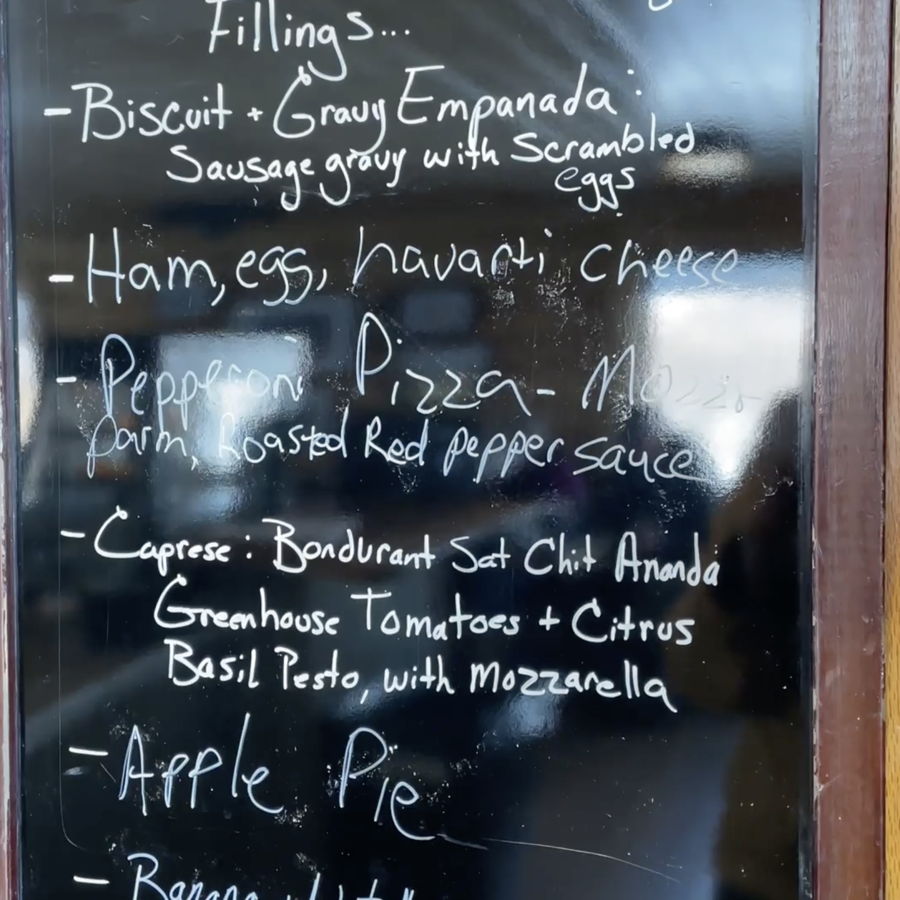 Fillings...
- Biscuit + Gravy Empanada:
Sausage gravy with Scrambled
eggs
- Ham, egg, havarti cheese
- Pepperoni Pizza - Mozz
parm, Roasted Red pepper sauce
- Caprese: Bondurant Sat Chit Ananda
Greenhouse Tomatoes + Citrus
Basil Pesto, with Mozzarella
- Apple Pie
- Banana